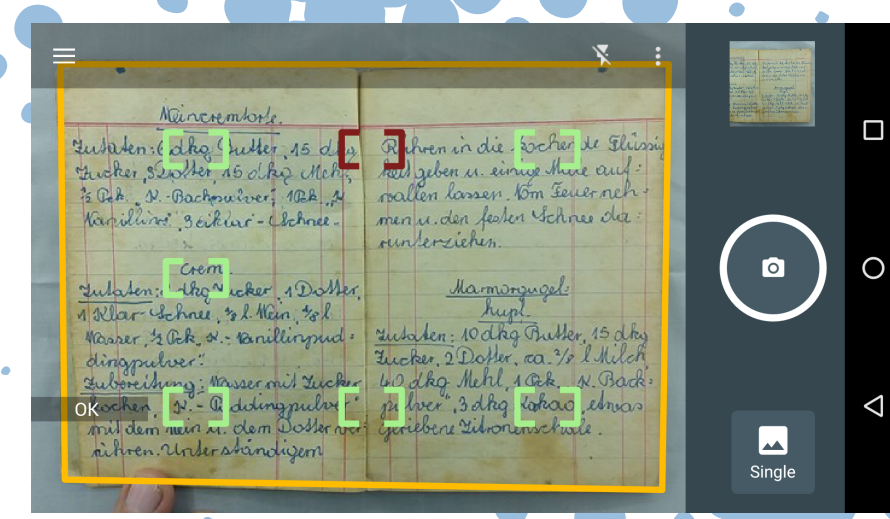 Weincremtorte.
Zutaten: 6 dkg Butter, 15 dkg
Zucker, 3 Dotter, 15 dkg Mehl,
½ Pck. "K.-Backpulver", 1 Pck. "K.
Vanillins", 3 Eiklar-Schnee.
Crem.
Zutaten: dkg Zucker, 1 Dotter,
1 Klar-Schnee, ⅛ l Wein, ⅛ l
Wasser, ½ Pck. K.-Vanillinpud=
dingpulver".
Zubereitung: Wasser mit Zucker
kochen, "K.-Puddingpulver"
mit dem Wein u. dem Dotter ver=
rühren. Unter ständigem
Rühren in die kochende Flüssig
keit geben u. einige Male auf=
wallen lassen. Vom Feuer neh=
men u. den festen Schnee da=
runterziehen.
Marmorgugel=
hupf.
Zutaten: 10 dkg Butter, 15 dkg
Zucker, 2 Dotter, ca. ²/₈ l Milch
40 dkg Mehl, 1 Pck. "K. Back=
pulver", 3 dkg Kakao, etwas
geriebene Zitronenschale.
OK
Single